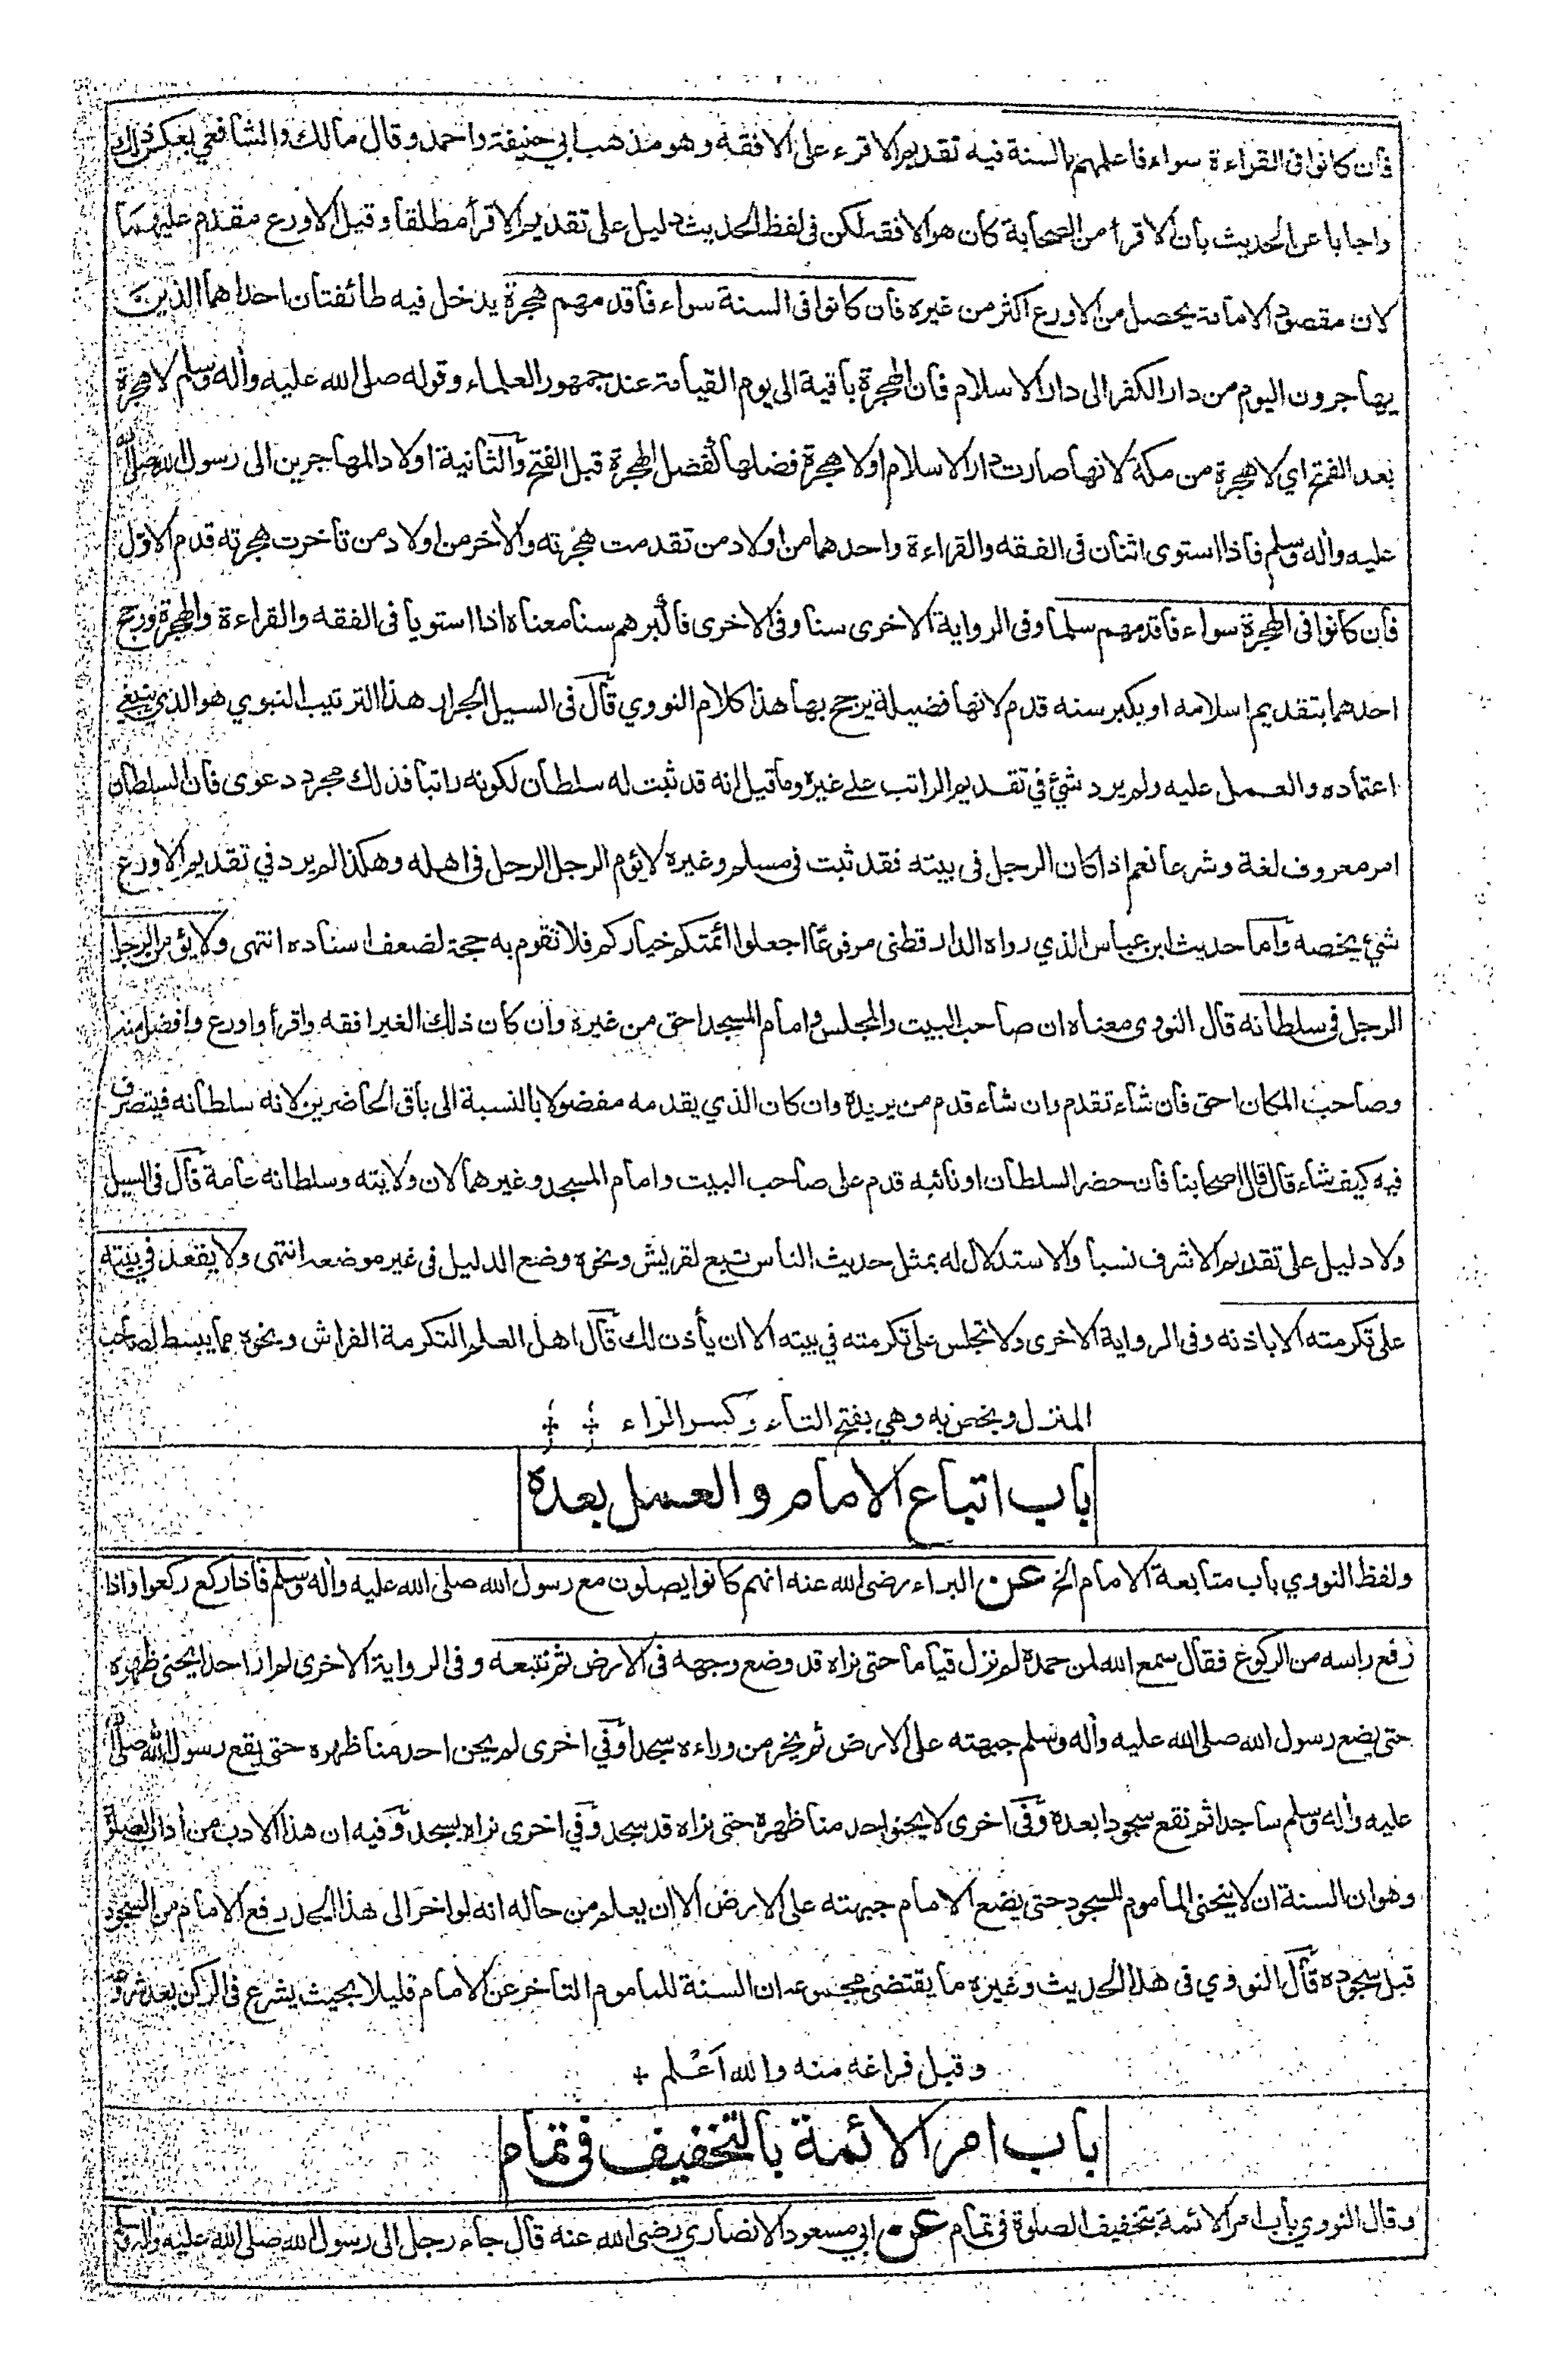 فان كانوا فى القراءة سواء فاعلمهم بالسنة فيه تقديم الاقرء على الافقه وهو مذهب ابي حنيفة واحمد وقال مالك والشافعي بعكس ذلك
واجابا عن الحديث بأن الاقرأ من الصحابة كان هو الافقه لكن فى لفظ الحديث دليل على تقديم الاقرأ مطلقا وقيل الاورع مقدم عليهما
لان مقصود الامامة يحصل من الاورع اكثر من غيره فان كانوا فى السنة سواء فأقدمهم هجرة يدخل فيه طائفتان احداهما الذين
يهاجرون اليوم من دار الكفر الى دار الاسلام فان الهجرة باقية الى يوم القيامة عند جمهور العلماء وقوله صلى الله عليه وأله وسلم لا هجرة
بعد الفتح اي لا هجرة من مكة لانها صارت دار الاسلام اولا هجرة فضلها كفضل الهجرة قبل الفتح والثانية اولاد المهاجرين الى رسول الله صلى الله
عليه وأله وسلم فاذا استوى اثنان فى الفقه والقراءة واحدهما من اولاد من تقدمت هجرته والأخر من اولاد من تأخرت هجرته قدم الاول
فان كانوا فى الهجرة سواء فاقدمهم سلما وفى الرواية الاخرى سنا وفى الاخرى فأكبرهم سنا معناه اذا استويا فى الفقه والقراءة والهجرة ورجح
احدهما بتقديم اسلامه او بكبر سنه قدم لانها فضيلة يرجح بها هذا كلام النووي قال فى السيل الجرار هذا الترتيب النبوي هو الذي ينبغي
اعتماده والعمل عليه ولم يرد شئ في تقديم الراتب على غيره وما قيل انه قد ثبت له سلطان لكونه راتبا فذلك مجرد دعوى فان السلطان
امر معروف لغة وشرعا نعم اذا كان الرجل فى بيته فقد ثبت فى مسلم وغيره لا يؤم الرجل الرجل فى اهله وهكذا لم يرد في تقديم الاورع
شئ يخصه وأما حديث ابن عباس الذي رواه الدارقطنى مرفوعا اجعلوا ائمتكم خياركم فلا تقوم به حجة لضعف اسناده انتهى ولا يؤمن الرجل
الرجل فى سلطانه قال النووى معناه ان صاحب البيت والمجلس وامام المسجد احق من غيره وان كان ذلك الغير افقه واقرأ واورع وافضل منه
وصاحب المكان احق فأن شاء تقدم وان شاء قدم من يريده وان كان الذي يقدمه مفضولا بالنسبة الى باقى الحاضرين لانه سلطانه فيتصرف
فيه كيف شاء قال قال اصحابنا فأن حضر السلطان او نائبه قدم على صاحب البيت وامام المسجد وغيرهما لان ولايته وسلطانه عامة قال فى السيل
ولا دليل على تقديم الاشرف نسبا والاستدلال له بمثل حديث الناس تبع لقريش ونحوه وضع الدليل فى غير موضعه انتهى ولا يقعد في بيته
على تكرمته الا باذنه وفى الرواية الاخرى ولا تجلس على تكرمته في بيته الا ان يأذن لك قال اهل العلم التكرمة الفراش ونحوه مما يبسط لصاحب
المنزل ويخص به وهي بفتح التاء وكسر الراء
باب اتباع الامام والعمل بعده
ولفظ النووي باب متابعة الامام الخ عن البراء رضى الله عنه انهم كانوا يصلون مع رسول الله صلى الله عليه وأله وسلم فاذا ركع ركعوا واذا
رفع راسه من الركوع فقال سمع الله لمن حمده لم نزل قياما حتى نراه قد وضع وجهه فى الارض ثم نتبعه وفى الرواية الاخرى لم ار احدا يحنى ظهره
حتى يضع رسول الله صلى الله عليه وأله وسلم جبهته على الارض ثم يخر من وراءه سجدا وفي اخرى لم يحن احد منا ظهره حتى يقع رسول الله صلى الله
عليه وأله وسلم ساجدا ثم نقع سجودا بعده وفى اخرى لا يحنو احد منا ظهره حتى نراه قد سجد وفي اخرى نراه يسجد وفيه ان هذا الادب من أداب الصلوة
وهو ان السنة ان لا ينحنى المأموم للسجود حتى يضع الامام جبهته على الارض الا ان يعلم من حاله انه لو اخر الى هذا الحد رفع الامام من السجود
قبل سجوده قال النووي فى هذا الحديث وغيره ما يقتضى مجموعه ان السنة للمأموم التأخر عن الامام قليلا بحيث يشرع فى الركن بعد شروعه
وقبل فراغه منه والله أعلم
باب امر الائمة بالتخفيف فى تمام
وقال النووي باب امر الائمة بتخفيف الصلوة فى تمام عن ابي مسعود الانصاري رضى الله عنه قال جاء رجل الى رسول الله صلى الله عليه وأله وسلم